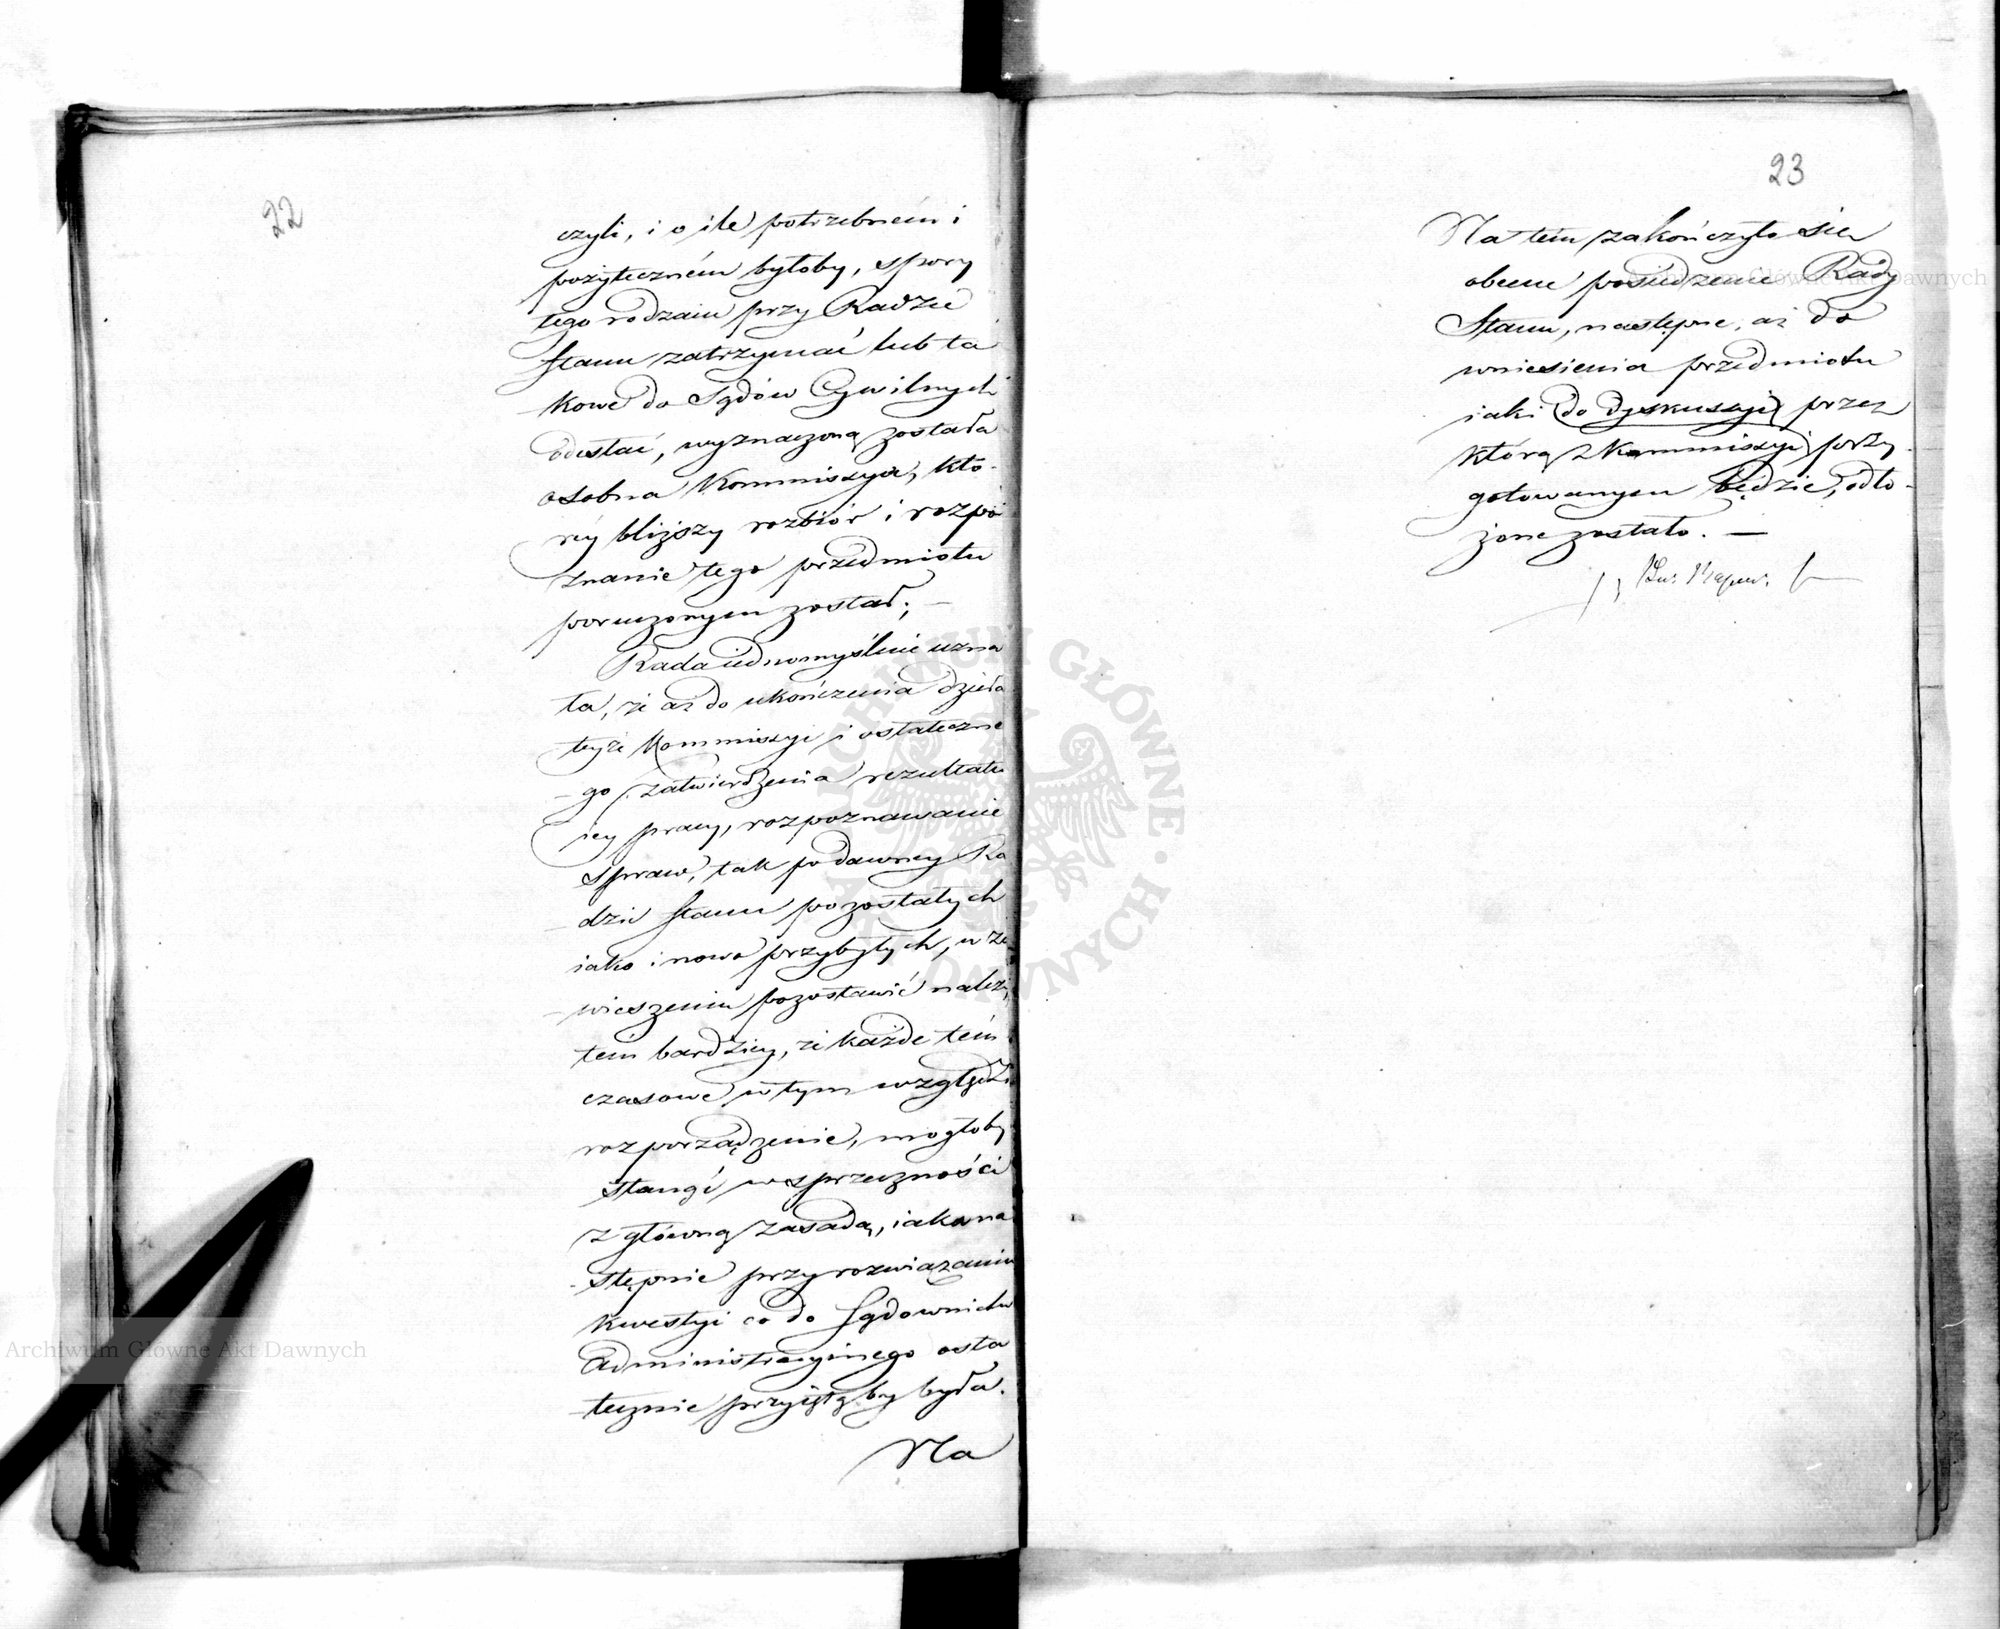 22
czyli, i o ile potrzebném i
pożyteczném byłoby, spory
tego rodzaiu przy Radzie
Stanu zatrzymać lub ta
kowe do Sądów Cywilnych
odesłać, wyznaczoną została
osobna Kommissya, któ-
réy bliższy rozbiór i rozpo
znanie tego przedmiotu
poruczonym został; —
Rada iednomyślnie uzna
ła, że aż do ukończenia dzieła
teyże Kommissyi i ostateczne
-go zatwierdzenia rezultatu
iey pracy, rozpoznawanie
spraw, tak po dawney Ra
dzie Stanu pozostałych
iako i nowo przybyłych, w za
-wieszeniu pozostawić należy,
tém bardziey, że każde tém-
czasowe w tym względzie
rozporządzenie, mogłoby
stanąć w sprzeczności
z główną zasadą, iaka na
-stępnie przy rozwiązaniu
kwestyi co do Sądownictw
Administracyinego osta
-tecznie przyiętą by była.
Na
23
Na tém zakończyło się
obecne posiedzenie Rady
Stanu, następne, aż do
wniesienia przedmiotu
iaki do dyskussyi przez
którą z Kommissyi przy
gotowanym będzie, odło-
żone zostało. —
Archiwum Główne Akt Dawnych
Archiwum Główne Akt Dawnych
ARCHIWUM GŁÓWNE AKT DAWNYCH